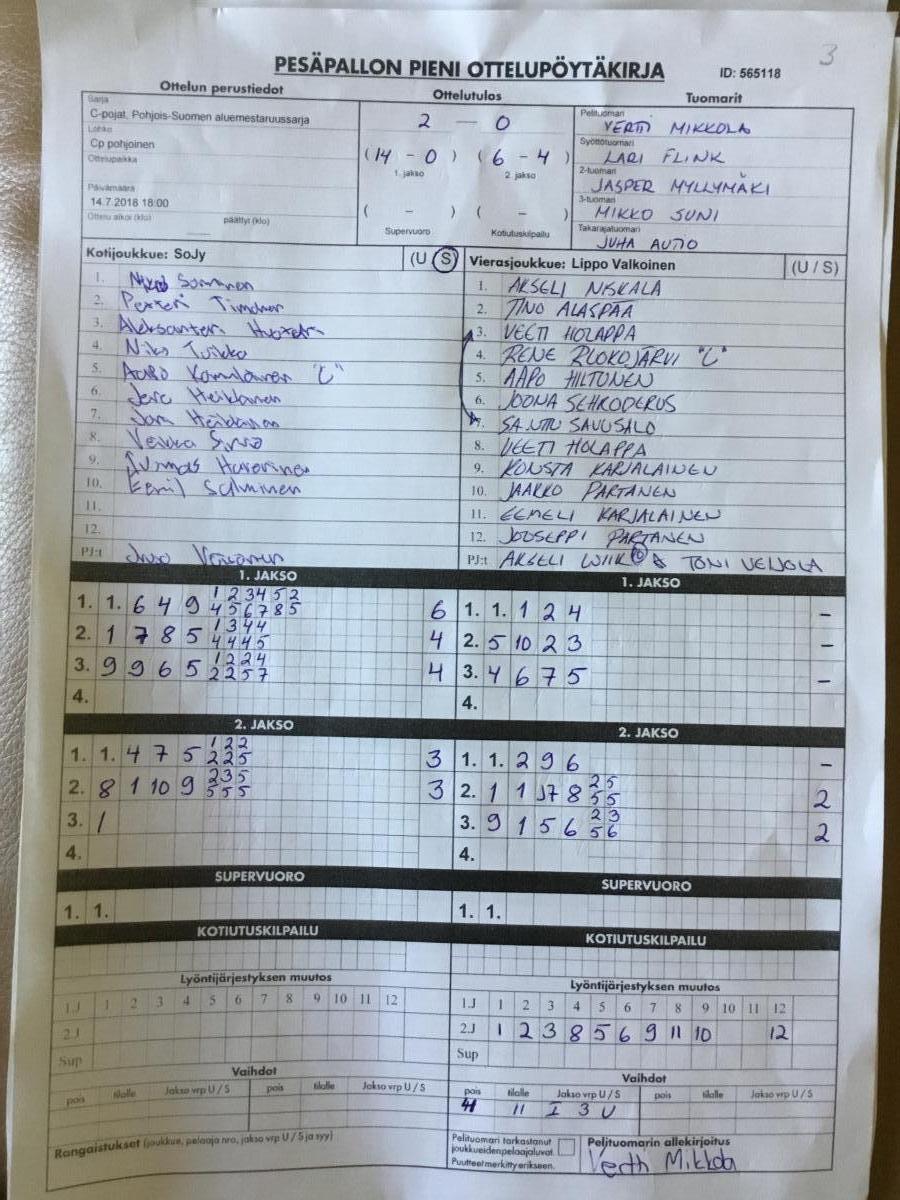 3
PESÄPALLON PIENI OTTELUPÖYTÄKIRJA ID: 565118
Ottelun perustiedot Ottelutulos Tuomarit
Sarja
C-pojat, Pohjois-Suomen aluemestaruussarja
Lohko
Cp pohjoinen
Ottelupaikka
Päivämäärä
14.7.2018 18:00
Ottelu alkoi (klo) päättyi (klo)
2 — 0
(14 - 0) (6 - 4)
1. jakso 2. jakso
( - ) ( - )
Supervuoro Kotiutuskilpailu
Pelituomari
VERTTI MIKKOLA
Syöttötuomari
LARI FLINK
2-tuomari
JASPER MYLLYMÄKI
3-tuomari
MIKKO SUNI
Takarajatuomari
JUHA AUTIO
Kotijoukkue: SoJy (U / S)
1.
2. Timonen
3. Aleksanteri
4. Niko Tuikka
5. "C"
6. Heikkanen
7. Heikkanen
8. Veikka
9. Tuomas
10. Eemil Salminen
11.
12.
PJ:t
Vierasjoukkue: Lippo Valkoinen (U / S)
1. AKSELI NISKALA
2. TINO ALASPÄÄ
3. VEETI HOLAPPA
4. RENE "C"
5. AAPO HILTUNEN
6. JOONA SEHRODERUS
7. SANTTU SAVUSALO
8. VEETI HOLAPPA
9. KONSTA KARJALAINEN
10. JAAKKO PARTANEN
11. EEMELI KARJALAINEN
12. JOOSEPPI PARTANEN
PJ:t AKSELI TONI VEIJOLA
1. JAKSO
1. 1. 6 4 9 1 2 3 4 5 2 6
4 5 6 7 8 5
2. 1 7 8 5 1 3 4 4 4
4 4 4 5
3. 9 9 6 5 1 2 2 4 4
2 2 5 7
4.
1. JAKSO
1. 1. 1 2 4 –
2. 5 10 2 3 –
3. 4 6 7 5 –
4.
2. JAKSO
1. 1. 4 7 5 1 2 2 3
2 2 5
2. 8 1 10 9 2 3 5 3
5 5 5
3. 1
4.
2. JAKSO
1. 1. 2 9 6 –
2. 1 1 7 8 2 5 2
5 5
3. 9 1 5 6 2 3 2
5 6
4.
SUPERVUORO
1. 1.
SUPERVUORO
1. 1.
KOTIUTUSKILPAILU
KOTIUTUSKILPAILU
Lyöntijärjestyksen muutos
1.J 1 2 3 4 5 6 7 8 9 10 11 12
2.J
Sup
Lyöntijärjestyksen muutos
1.J 1 2 3 4 5 6 7 8 9 10 11 12
2.J 1 2 3 8 5 6 9 11 10 12
Sup
Vaihdot
pois tilalle Jakso vrp U / S pois tilalle Jakso vrp U / S
Vaihdot
pois tilalle Jakso vrp U / S pois tilalle Jakso vrp U / S
4 11 I 3 U
Rangaistukset (joukkue, pelaaja nro, jakso vrp U / S ja syy)
Pelituomari tarkastanut
joukkueiden pelaajaluvat.
Puutteet merkitty erikseen.
Pelituomarin allekirjoitus
Vertti Mikkola